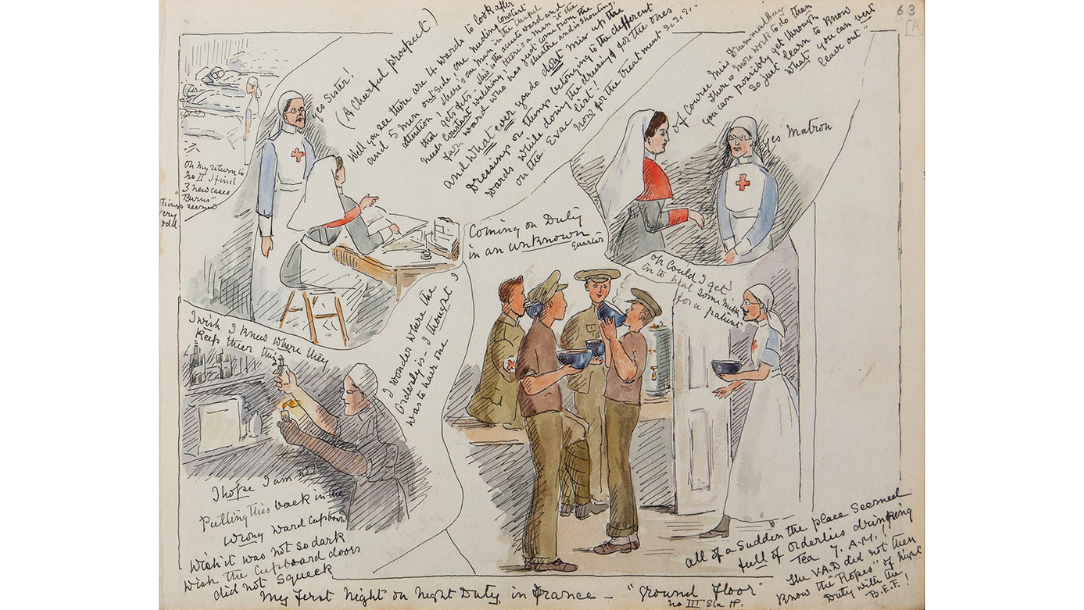 63
[A]
yes Sister!
(A Cheerful prospect)
Well you see there are 4 wards to look after
and 5 men outside one needing constant
attention & there's one man in the
that gets fits - this is the acute ward and
needs Constant watching, there's a man in the
far ward who has just come from the
theatre and is shouting.
and What ever you do dont mix up the
Dressings or things belonging to the different
wards while doing the dressings for the ones
on the Evac list!
Now for the treatment 2.2.2..
Of course Miss Drummallery
There is more work to do than
you can possibly get through
So just learn to know
what you can best
leave out"
yes Matron
On my return to
No II I find
3 new cases
"Burns"
Things seemed
very
odd.
Coming on Duty
in an unknown
quarter
Oh Could I get
in to heat some milk
for a patient
I wish I knew where they
Keep their things
I wonder where the
Orderly is - I thought I
was to have one
I hope I am not
Putting this back in the
wrong ward Cupboard
Wish it was not so dark
Wish the Cupboard doors
did not Squeek
all of a Sudden the place Seemed
full of Orderlies drinking
Tea 7. A.M.!!
The V.A.D did not then
Know the "Ropes" of Night
Duty with the
B.E.F.!
My first Night on Night Duty in France - "Ground floor"
No III Sta HP.